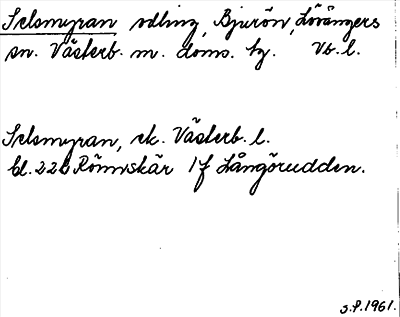 Selsmyran odling, Bjurön, Lövångers
sn. Västerb. m. doms. bg. Vb. l.
Selsmyran, ek. Västerb. l.
bl. 22b Rönnskär 1f Långörudden.
S.P. 1961.